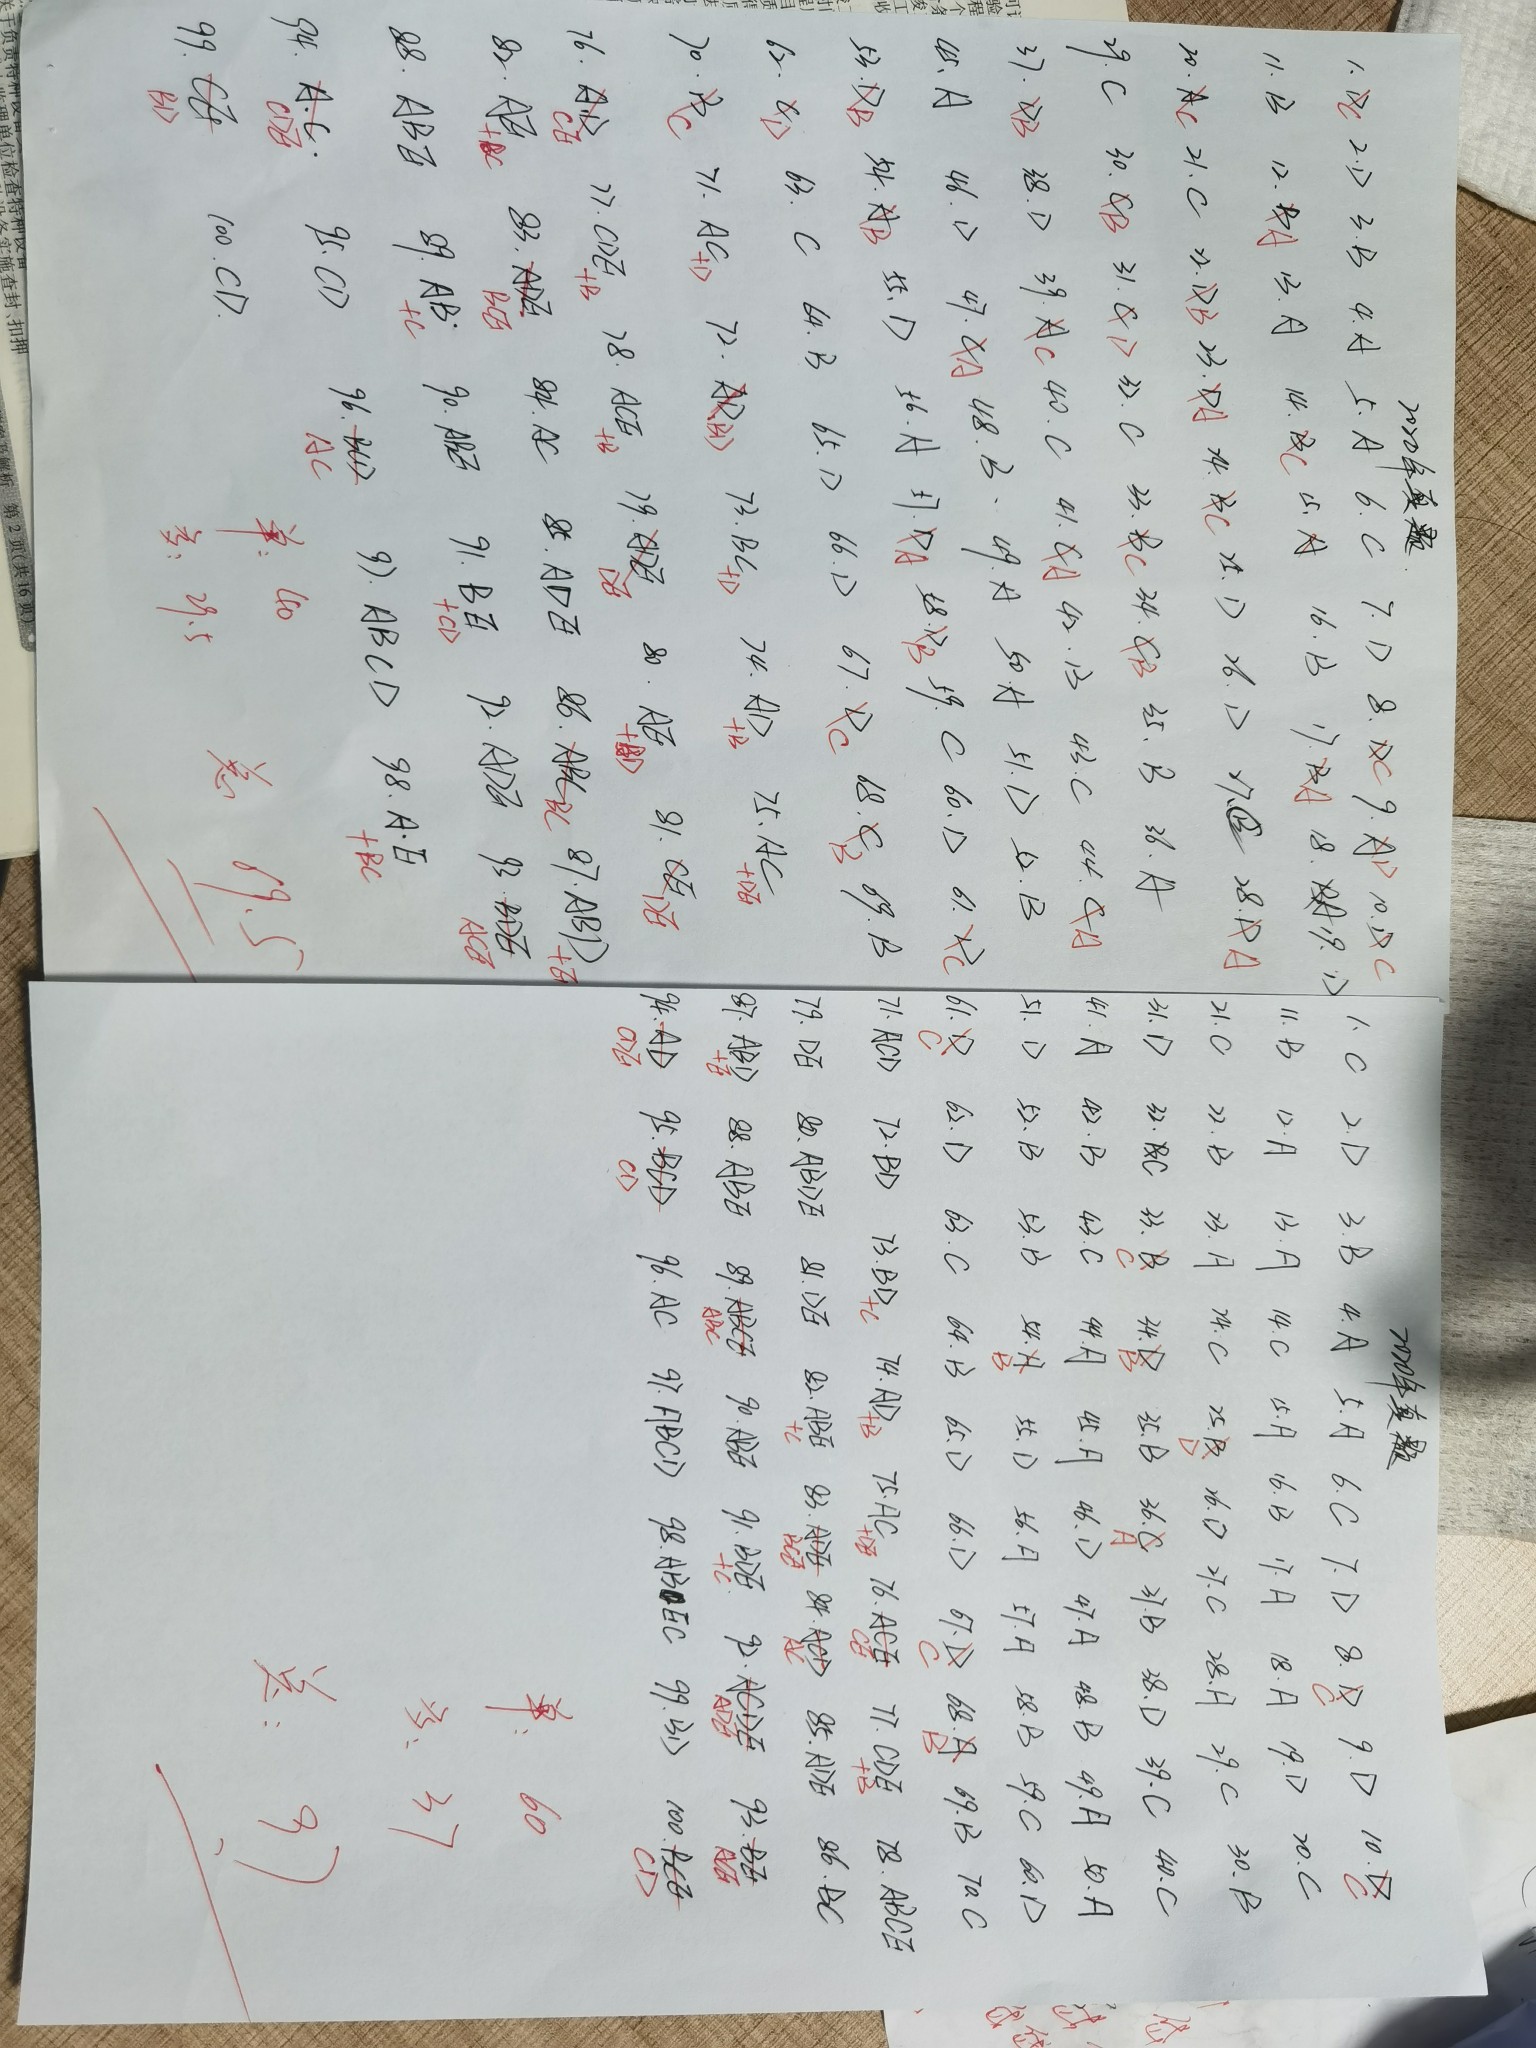 2020年真题
1. D C 2. D 3. B 4. A 5. A 6. C 7. D 8. D C 9. A D 10. D C
11. B 12. D A 13. A 14. B C 15. A 16. B 17. D A 18. A 19. D
20. A C 21. C 22. D B 23. D A 24. B C 25. D 26. D 27. 28. D A
29. C 30. C B 31. C D 32. C 33. B C 34. C B 35. B 36. A
37. D B 38. D 39. A C 40. C 41. C A 42. B 43. C 44. C A
45. A 46. D 47. C A 48. B 49. A 50. A 51. D 52. B
53. D B 54. A B 55. D 56. A 57. D A 58. D B 59. C 60. D 61. D C
62. C D 63. C 64. B 65. D 66. D 67. D C 68. C B 69. B
70. B C 71. AC +D 72. BD 73. BC +D 74. AD +B 75. AC +DE
76. AD CE 77. CDE +B 78. ACE +B 79. ADE DE 80. AE +BD 81. CE DE
82. AE +BC 83. ADE BCE 84. AC 85. ADE 86. ABC BC 87. ABD +E
88. ABE 89. AB +C 90. ABE 91. BE +CD 92. ADE 93. BDE ACE
94. A.C. CDE 95. CD 96. BCD AC 97. ABCD 98. A.E +BC
99. CE BD 100. CD.
单: 40
多: 29.5
总 69.5
2020年真题
1. C 2. D 3. B 4. A 5. A 6. C 7. D 8. D C 9. D 10. B C
11. B 12. A 13. A 14. C 15. A 16. B 17. A 18. A 19. D 20. C
21. C 22. B 23. A 24. C 25. B D 26. D 27. C 28. A 29. C 30. B
31. D 32. C 33. B C 34. D B 35. B 36. C A 37. B 38. D 39. C 40. C
41. A 42. B 43. C 44. A 45. A 46. D 47. A 48. B 49. A 50. A
51. D 52. B 53. B 54. A B 55. D 56. A 57. A 58. B 59. C 60. D
61. D C 62. D 63. C 64. B 65. D 66. D 67. D C 68. A B 69. B 70. C
71. ACD 72. BD 73. BD +C 74. AD +B 75. AC +DE 76. ACE CE 77. CDE +B 78. ABCE
79. DE 80. ABDE 81. DE 82. ABE +C 83. ADE BCE 84. ACD AC 85. ADE 86. BC
87. ABD +E 88. ABE 89. ABCE ABC 90. ABE 91. BDE +C 92. ACDE ADE 93. BE ACE
94. AD CDE 95. BCD CD 96. AC 97. ABCD 98. AB EC 99. BD 100. BCE CD
单: 60
多: 37
总: 97
第 2 页(共 16 页)